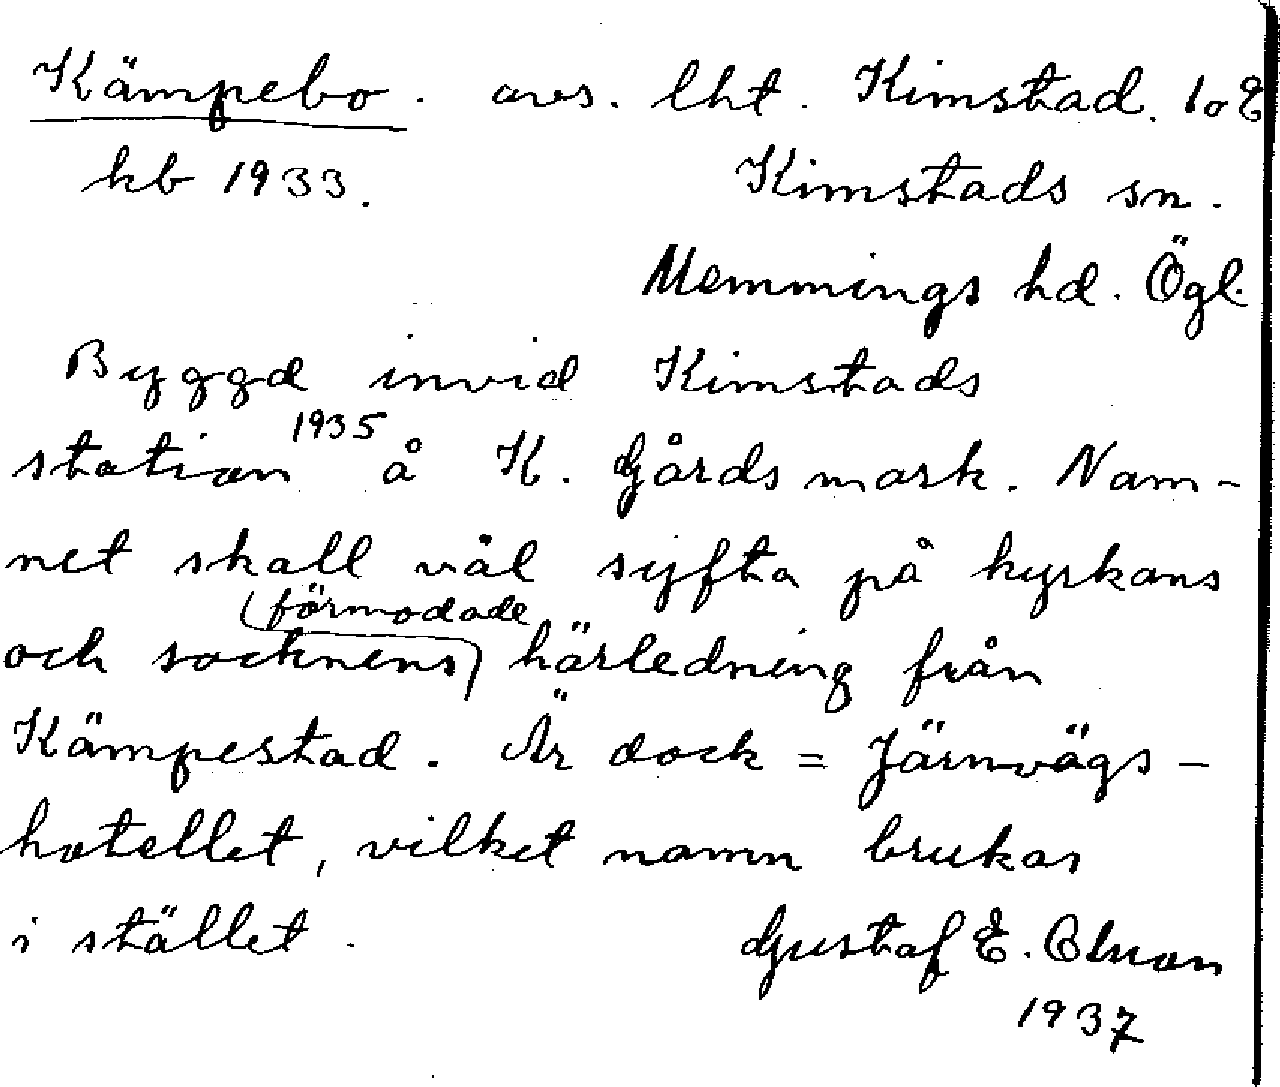 Kämpebo. avs. lht. Kimstad. 1o E
kb 1933. Kimstads sn.
Memmings hd. Ögl.
Byggd invid Kimstads
station 1935 å K. Gårds mark. Nam-
net skall väl syfta på kyrkans
och socknens förmodade härledning från
Kämpestad. Är dock = Järnvägs-
hotellet, vilket namn brukas
i stället.
Gustaf E.
1937